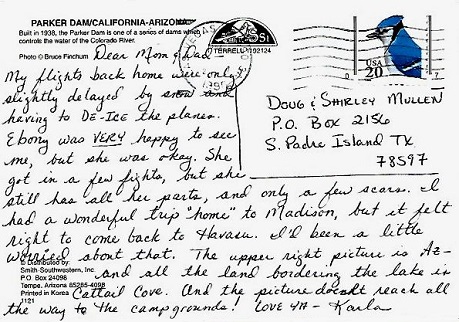 PARKER DAM/CALIFORNIA-ARIZONA
Built in 1938, the Parker Dam is one of a series of dams which
controls the water of the Colorado River.
Photo © Bruce Finchum
Dear Mom & Dad—
My flights back home were only
slightly delayed by snow and
having to DE-ICE the planes.
Ebony was VERY happy to see
me, but she was okay. She
got in a few fights, but she
still has all her parts, and only a few scars. I
had a wonderful trip "home" to Madison, but it felt
right to come back to Havasu. I'd been a little
worried about that. The upper right picture is Az-
and all the land bordering the lake is
Cattail Cove. And the picture doesn't reach all
the way to the campgrounds! LOVE YA - Karla
© Distributed by:
Smith-Southwestern, Inc.
P.O. Box 24098
Tempe, Arizona 85285-4098
Printed in Korea
1121
TERRELL
USA
20
DOUG & SHIRLEY MULLEN
P.O. BOX 2156
S. Padre Island TX
78597